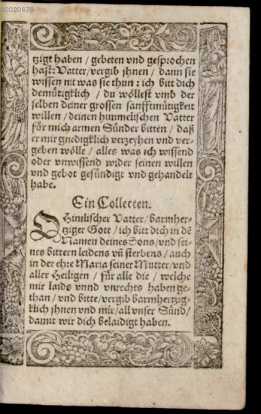 zigt haben / gebeten vnd gesprochen
hast: Vatter / vergib jhnen / dann sie
wissen nit was sie thun: ich bitt dich
demütigklich / du wöllest vmb der
selben deiner grossen sanfftmütigkeit
willen / deinen himmelischen Vatter
für mich armen Sünder bitten / daß
er mir gnedigklich verzeyhen vnd ver-
geben wölle / alles was ich wissend
oder vnwissend wider seinen willen
vnd gebot gesündigt vnd gehandelt
habe.
Ein Collecten.
O Himlischer Vatter / barmher-
tziger Gott / ich bitt dich in dē
Namen deines Sons / vnd sei-
nes bittern leidens vñ sterbens / auch
in der ehre Maria seiner Mutter / vnd
aller Heiligen / für alle die / welche
mir laids vnnd vnrechts haben ge-
than / vnd bitte / vergib barmhertzig-
klich jhnen vnd mir / all vnser Sünd /
damit wir dich belaidigt haben.